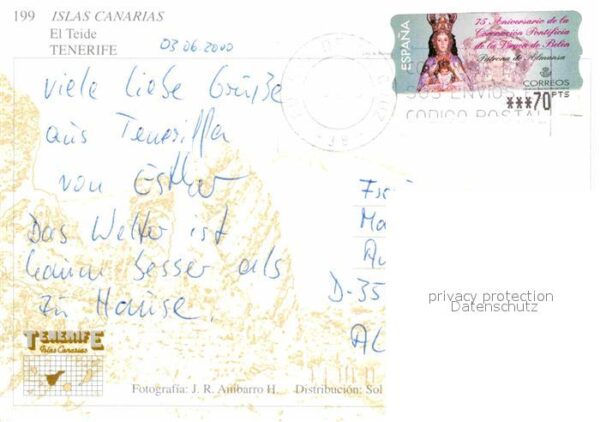 199 ISLAS CANARIAS
El Teide
TENERIFE
03.06.2000
viele liebe Grüße
aus Teneriffa
von Esther
Das Wetter ist
kaum besser als
zu Hause.
ESPAÑA
75 Aniversario de la
Coronación Pontificia
de la Virgen de Belén
Patrona de Almansa
CORREOS
***70 PTS
SUS ENVIOS
CODIGO POSTAL
D-35
privacy protection
Datenschutz
TENERIFE
Islas Canarias
Fotografía: J. R. Ambarro H. Distribución: Sol